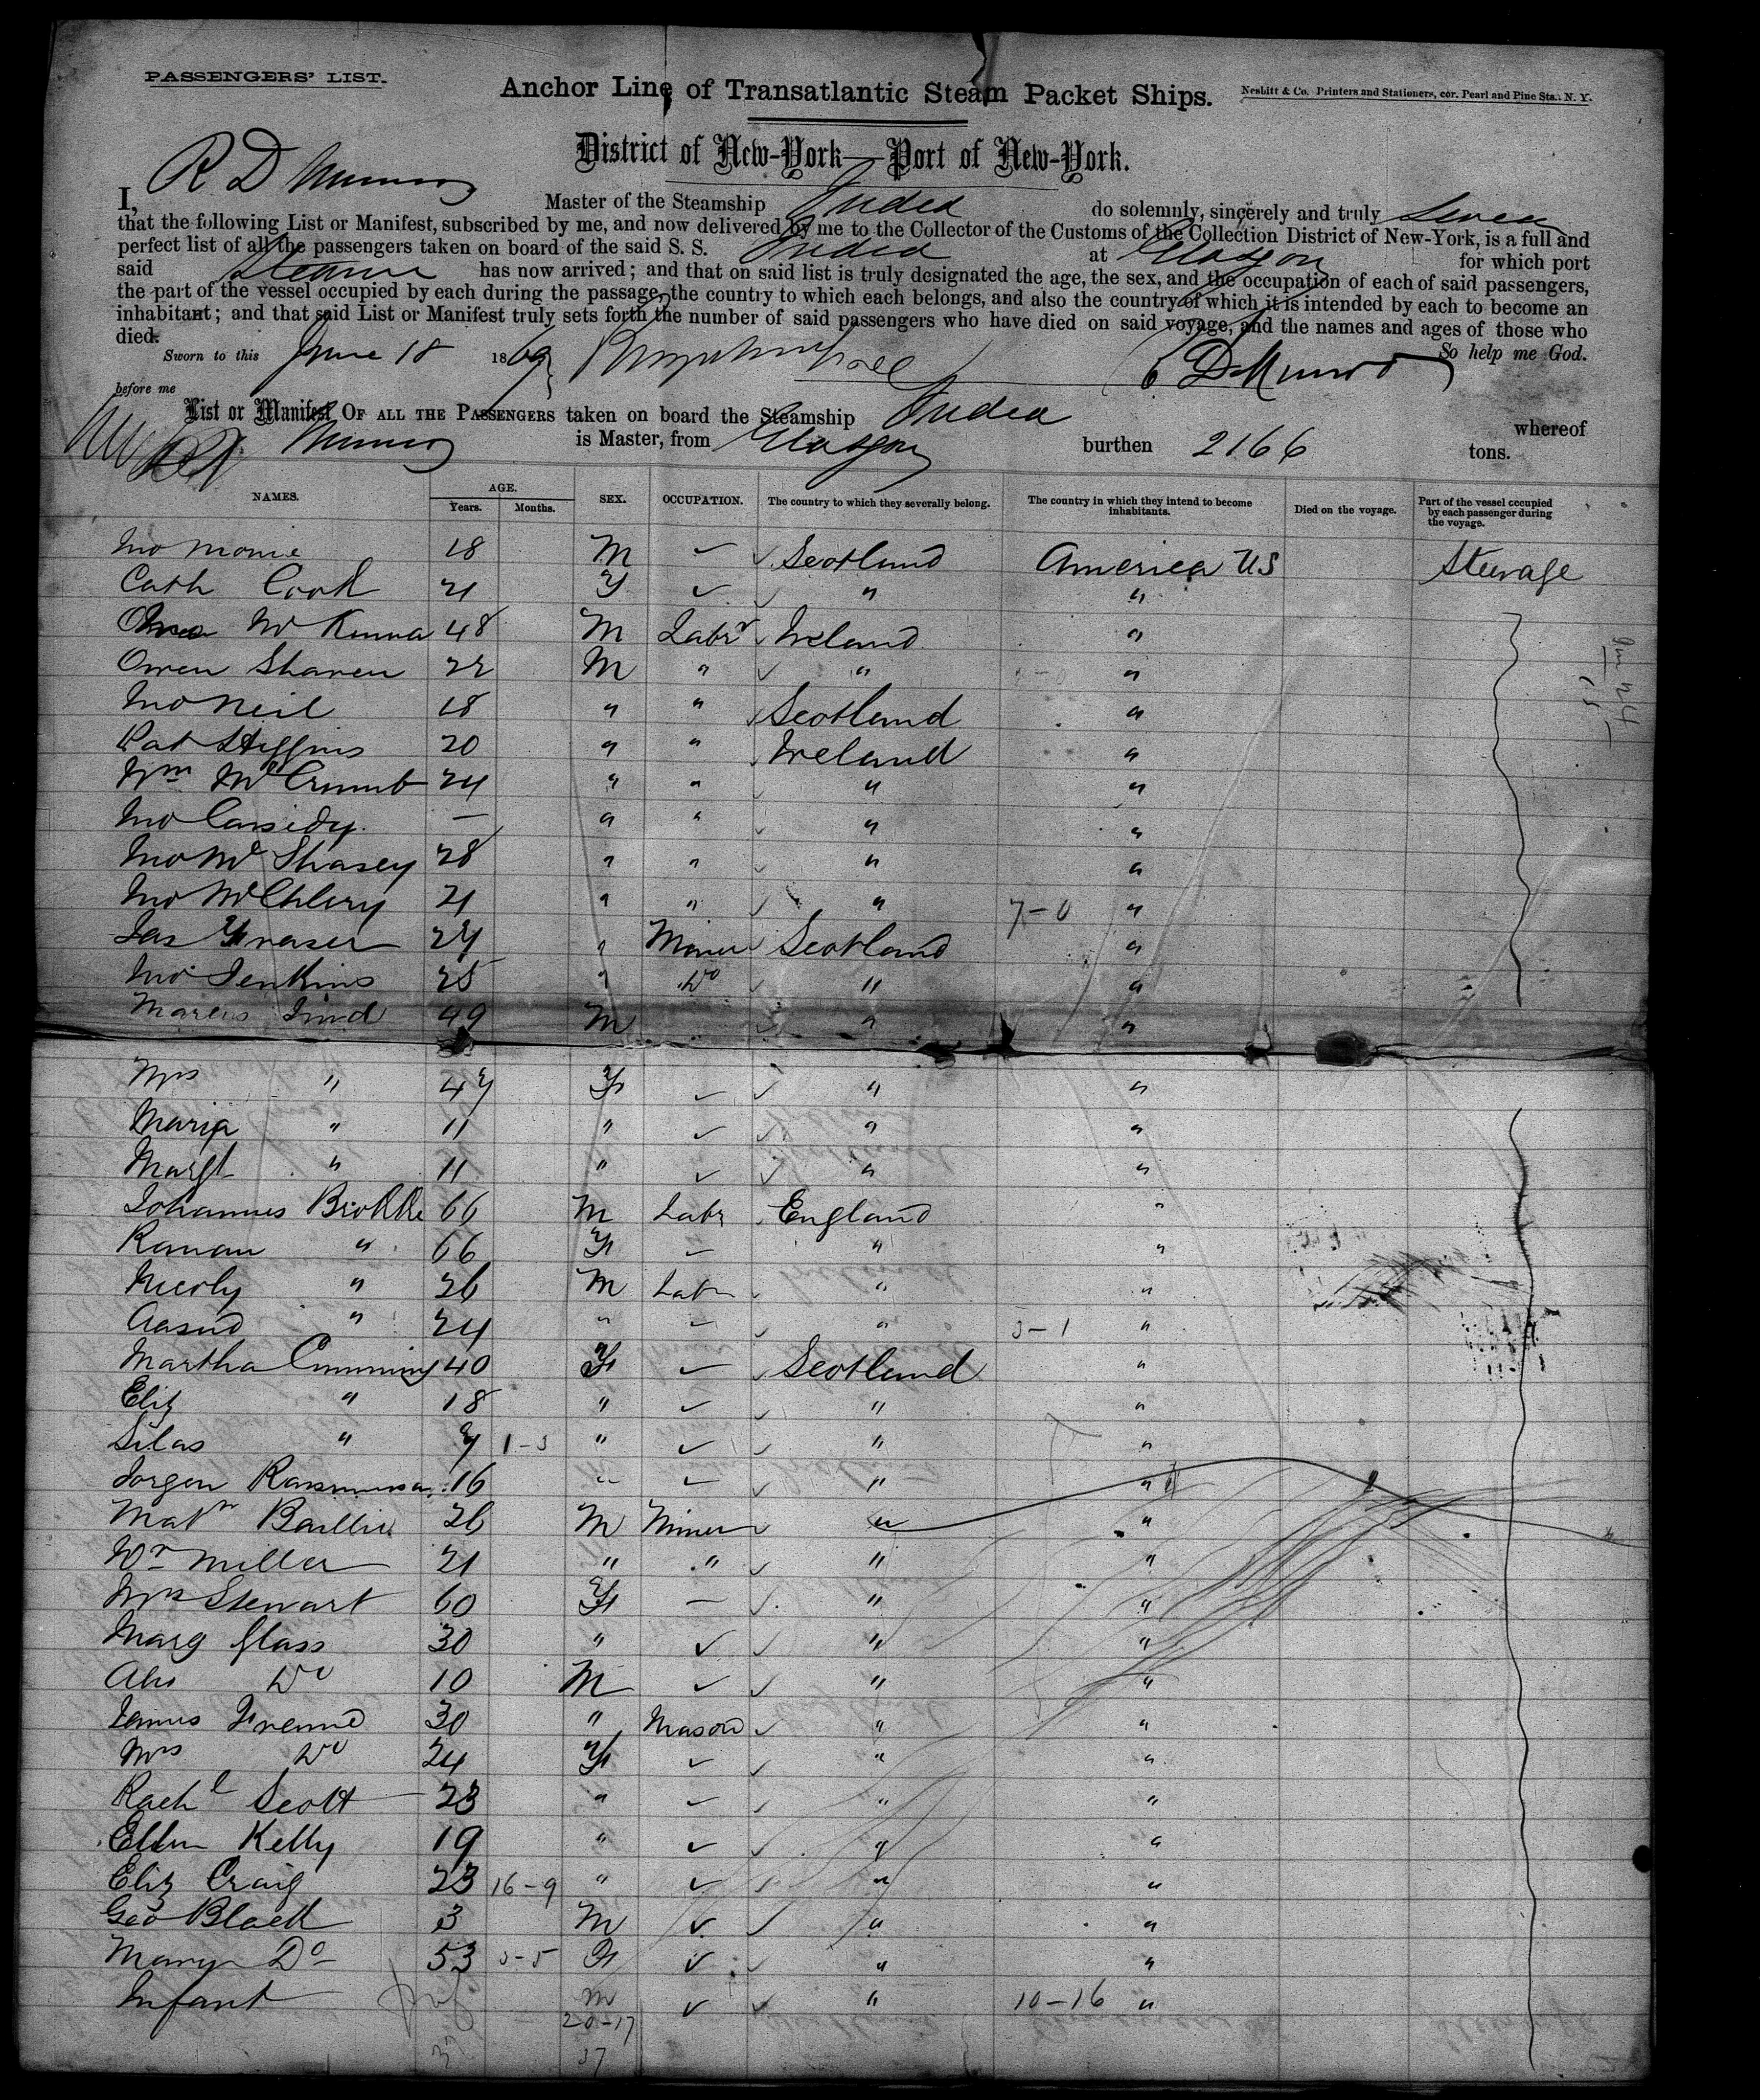 PASSENGERS' LIST.
Anchor Line of Transatlantic Steam Packet Ships.
Nesbitt & Co. Printers and Stationers, cor. Pearl and Pine Sts., N. Y.
District of New-York—Port of New-York.
I, R D Munro Master of the Steamship India do solemnly, sincerely and truly swear
that the following List or Manifest, subscribed by me, and now delivered by me to the Collector of the Customs of the Collection District of New-York, is a full and
perfect list of all the passengers taken on board of the said S. S. India at Glasgow for which port
said Steamer has now arrived; and that on said list is truly designated the age, the sex, and the occupation of each of said passengers,
the part of the vessel occupied by each during the passage, the country to which each belongs, and also the country of which it is intended by each to become an
inhabitant; and that said List or Manifest truly sets forth the number of said passengers who have died on said voyage, and the names and ages of those who
died.
So help me God.
Sworn to this June 18 1869
D Munro
before me
List or Manifest OF ALL THE PASSENGERS taken on board the Steamship India whereof
Munro is Master, from Glasgow burthen 2166 tons.
NAMES. AGE. Years. Months. SEX. OCCUPATION. The country to which they severally belong. The country in which they intend to become inhabitants. Died on the voyage. Part of the vessel occupied by each passenger during the voyage.
Jno 18 M Scotland America US Steerage
Cath Cook 21 F " "
McKenna 48 M Labr Ireland "
Owen Sharen 22 M " " "
Jno Neil 18 " " Scotland "
Pat Higgins 20 " " Ireland "
Wm McCrumb 24 " " " "
Jno Cassidy — " " " "
Jno McShasey 28 " " " "
Jno McChlery 21 " " " 7-0 "
Jas Fraser 24 " Miner Scotland "
Jno Jenkins 25 " Do " "
Marcus Lind 49 M " "
Mrs " 47 F " "
Maria " 11 " " "
Margt " 11 " " "
Johannes 66 M Labr England "
" 66 F " "
" 26 M Labr " "
" 24 " " 3-1 "
Martha Cumming 40 F Scotland "
Eliz " 18 " " "
Silas " 9 1-3 " " "
Jorgen 16 " " "
Matw Baillie 26 M Miner " "
Wm Miller 21 " " " "
Mrs Stewart 60 F — " "
Marg Glass 30 " " "
Do 10 M " "
James 30 " Mason " "
Mrs Do 24 F " "
Rachl Scott 23 " " "
Ellen Kelly 19 " " "
Eliz Craig 23 16-9 " " "
Geo Black 3 M " "
Mary Do 53 3-5 F " "
Infant m " 10-16 "
20-17
37 37